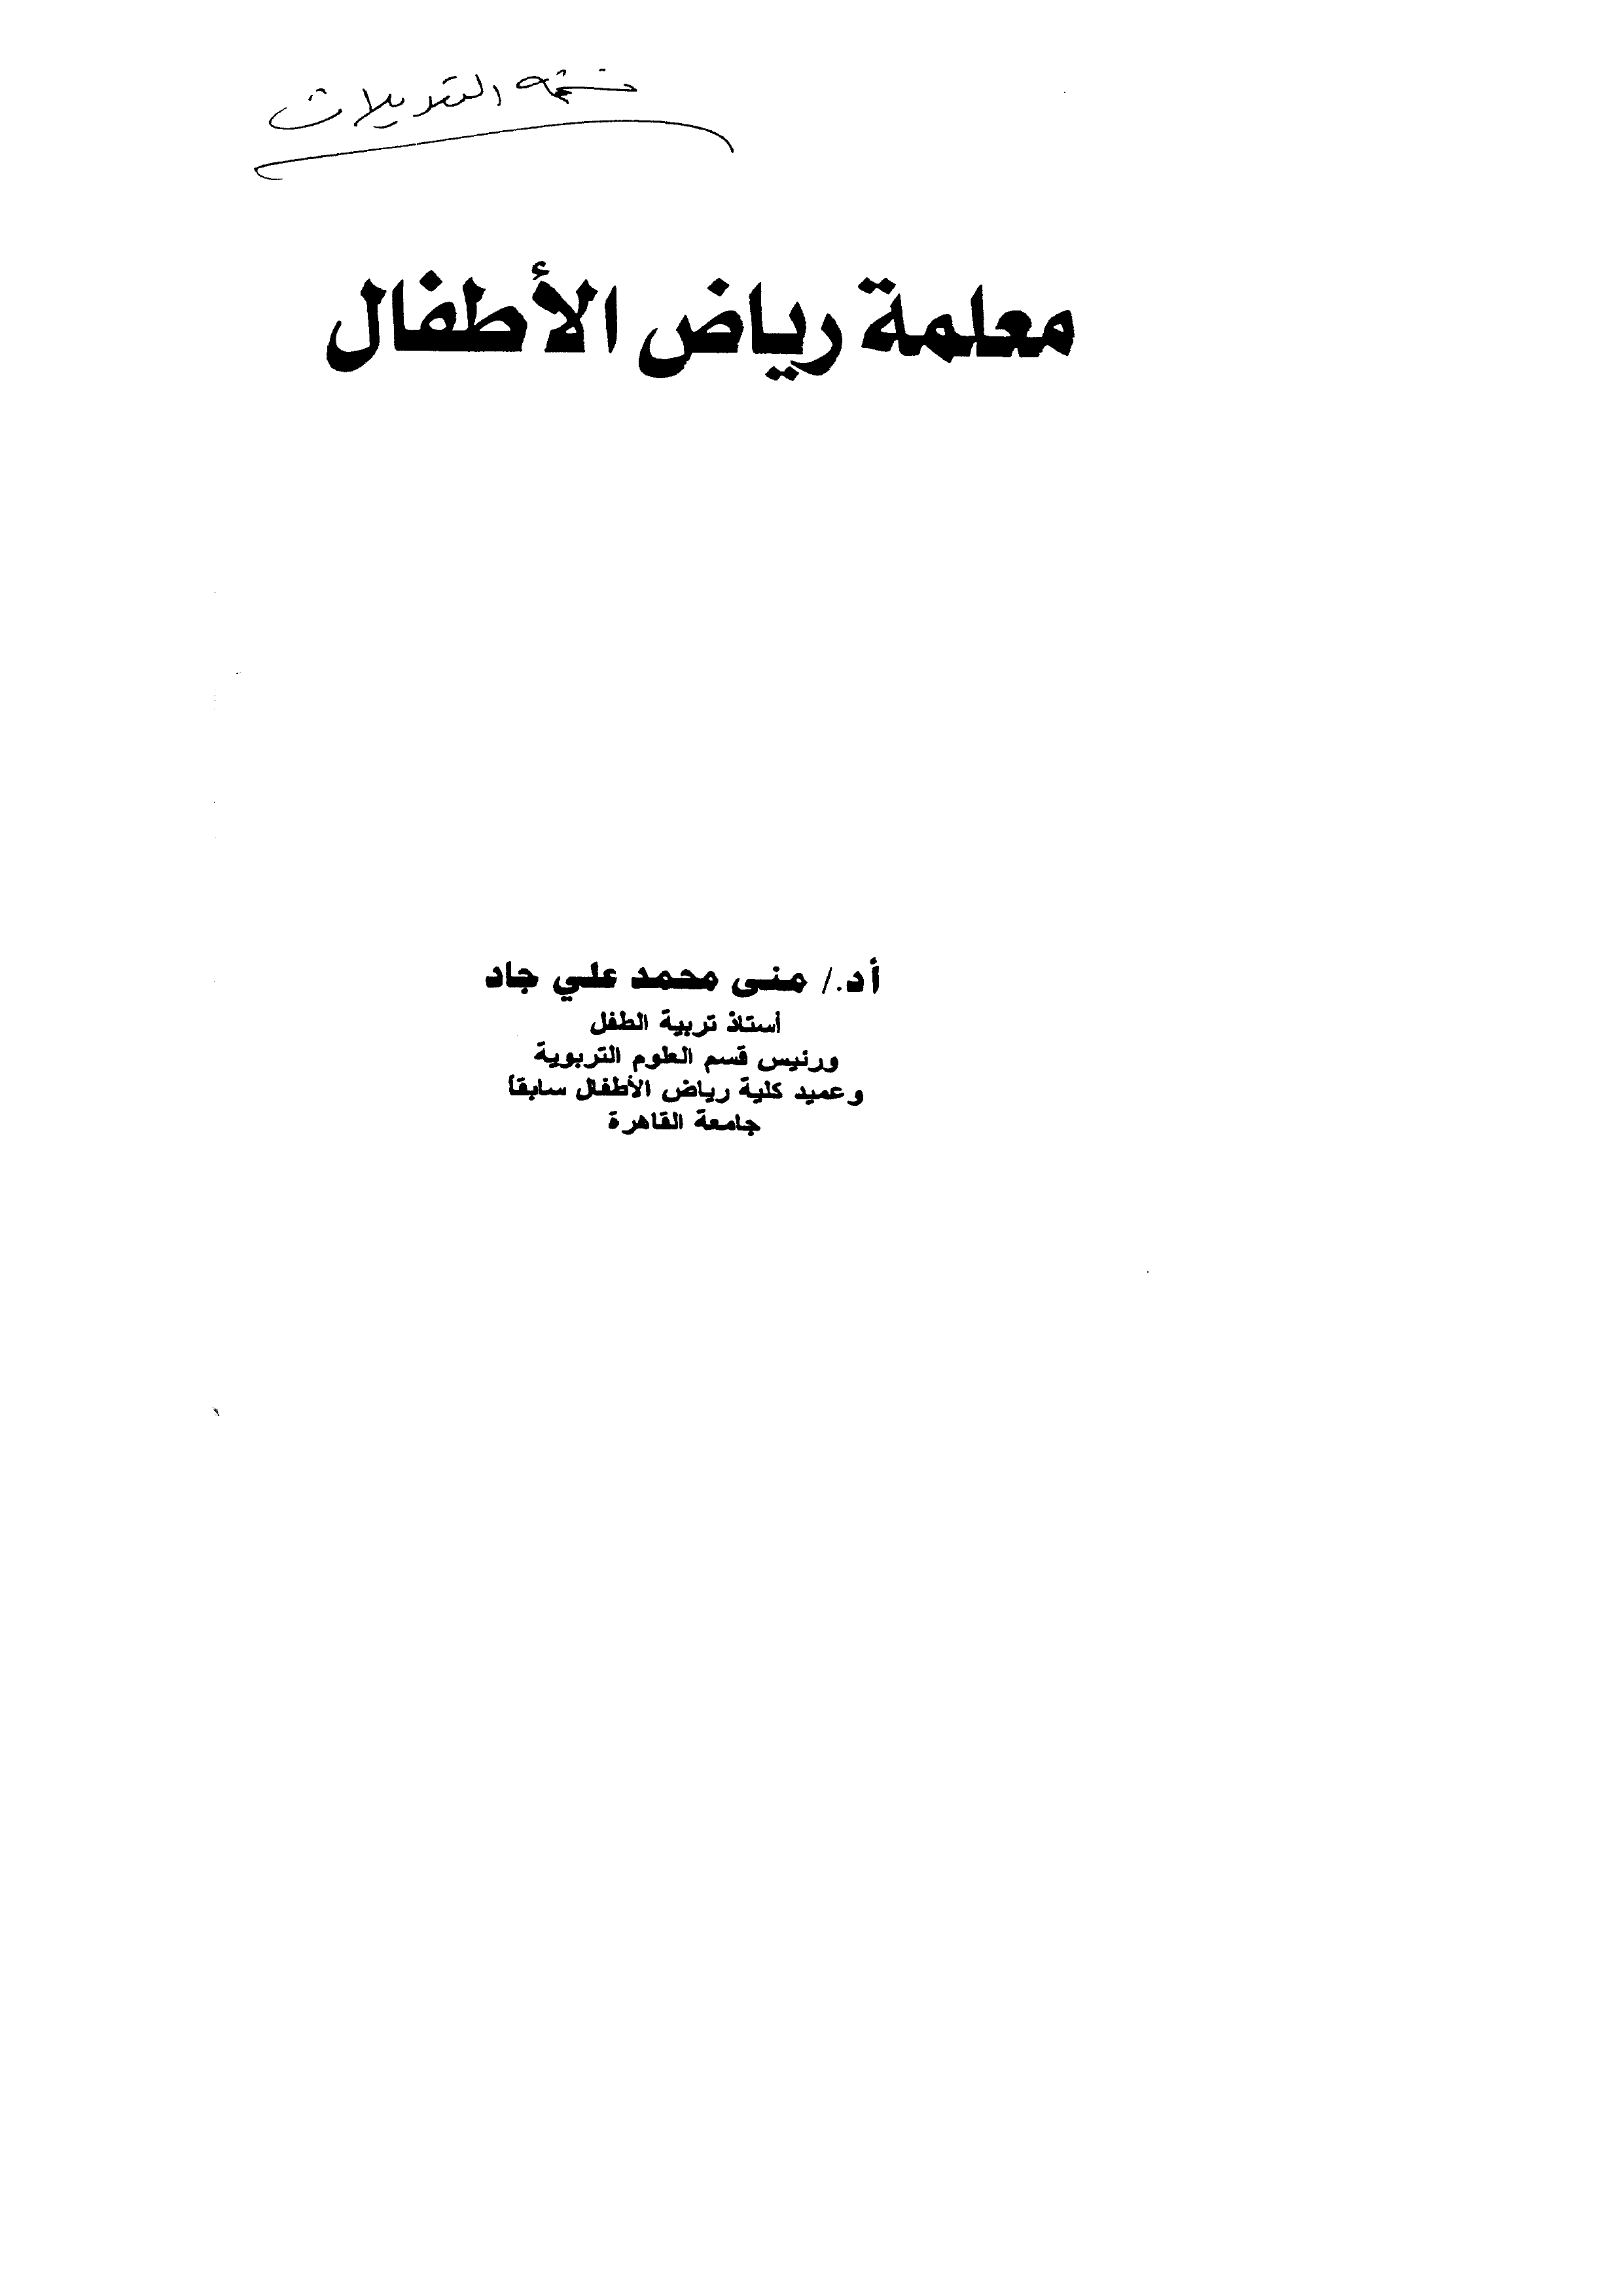 نسخة التعديلات
معلمة رياض الأطفال
أ.د./ منى محمد علي جاد
أستاذ تربية الطفل
ورئيس قسم العلوم التربوية
وعميد كلية رياض الأطفال سابقاً
جامعة القاهرة